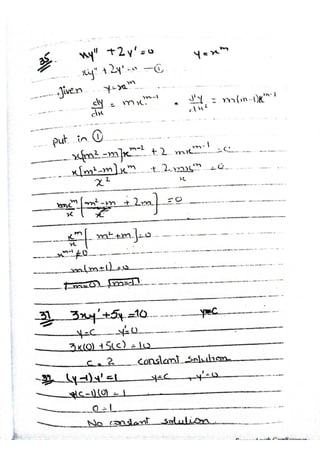 35. xy" + 2y' = 0 y = x^m
xy" + 2y' = 0 — ①
Given y = x^m
dy/dx = mx^(m-1) , d²y/dx² = m(m-1)x^(m-2)
put in ①
x[m²-m]x^(m-2) + 2 mx^(m-1) = 0
x[m²-m]x^m / x² + 2mx^m / x = 0
x^m/x [m²-m + 2m] = 0
x^m/x [m²+m] = 0
x^(m-1) ≠ 0
m(m+1) = 0
m=0, m=-1
37. 3xy' + 5y = 10 y=c
y=c y'=0
3x(0) + 5(c) = 10
c = 2 constant solution
39. (y-1)y' = 1 y=c, y'=0
(c-1)(0) = 1
0=1
No constant solution